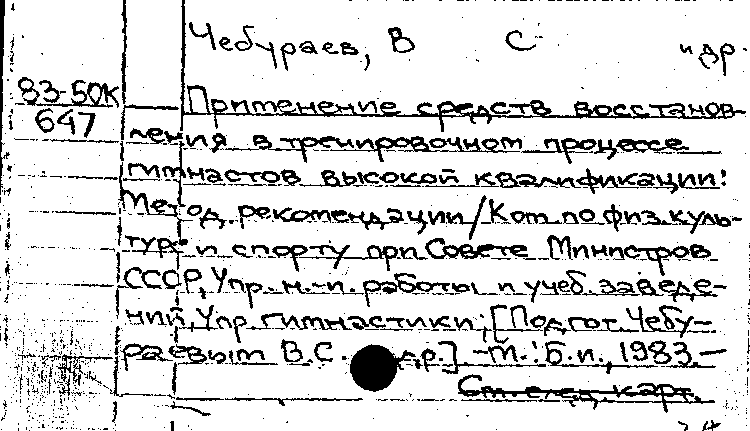 Чебураев, В С и др.
83-50К
647
Применение средств восстанов-
ления в тренировочном процессе
гимнастов высокой квалификации:
Метод. рекомендации/Ком. по физ. куль-
туре и спорту при Совете Министров
СССР, Упр. н.-и. работы и учеб. заведе-
ний, Упр. гимнастики; [Подгот. Чебу-
раевым В.С. др.] -М.: Б.и., 1983.-
См. след. карт.